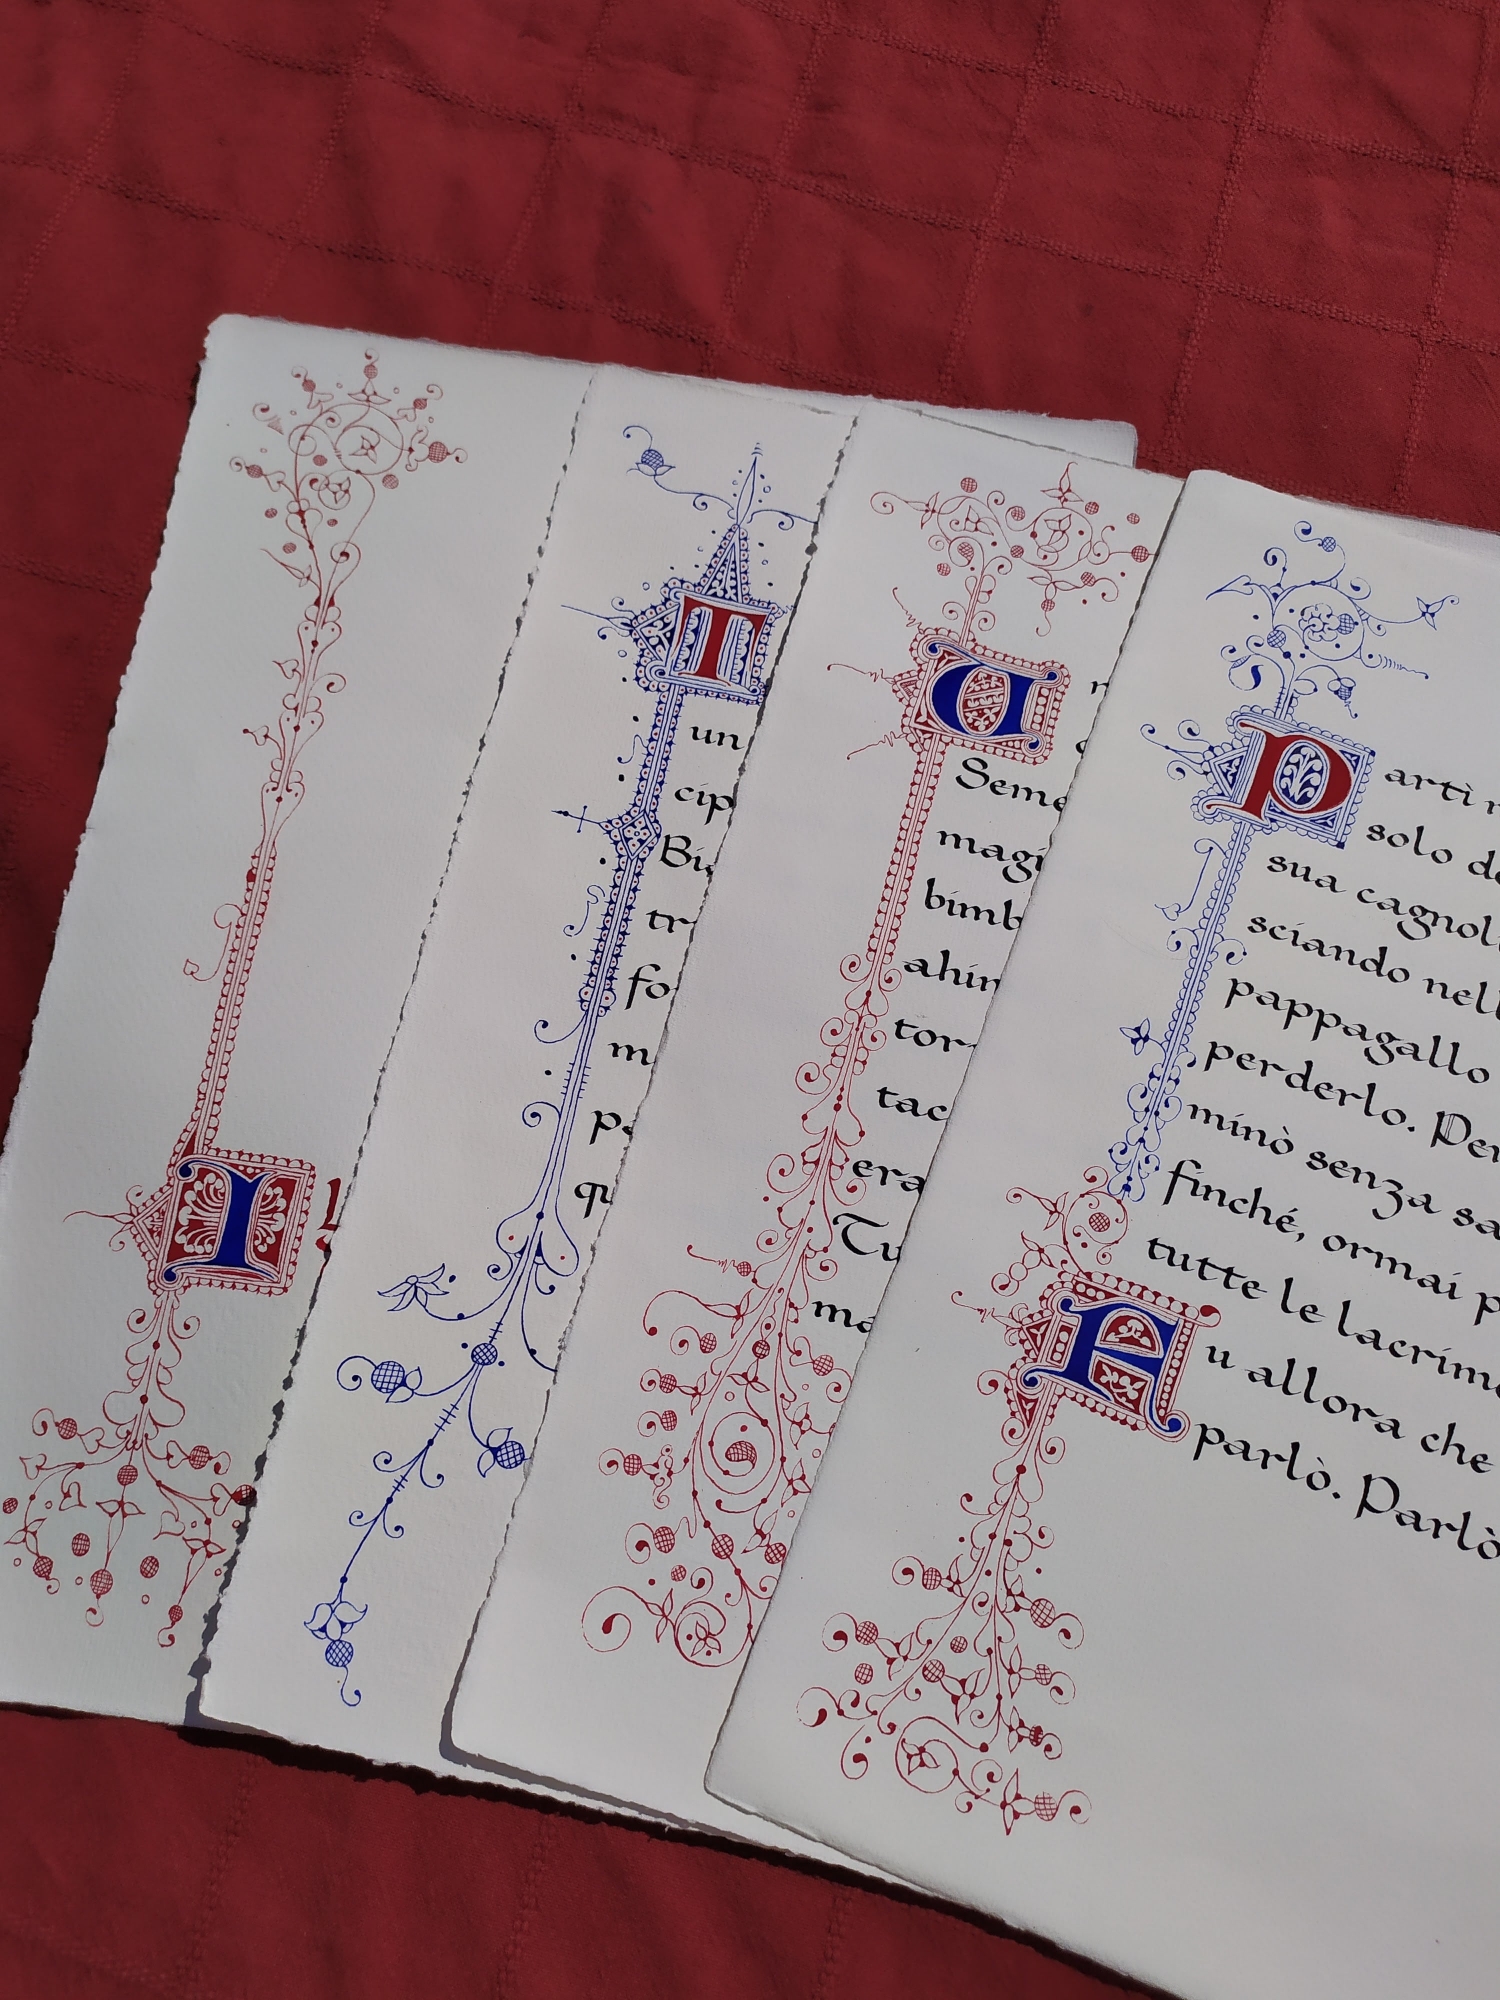 I
T
un
cip
tr
fo
m
qu
U
Seme
magi
bimb
tor
tac
era
Tu
Partì
solo
sua cagnol
sciando nell
pappagallo
perderlo. Per
minò senza sa
finché, ormai p
tutte le lacrim
Fu allora che
parlò. Parlò